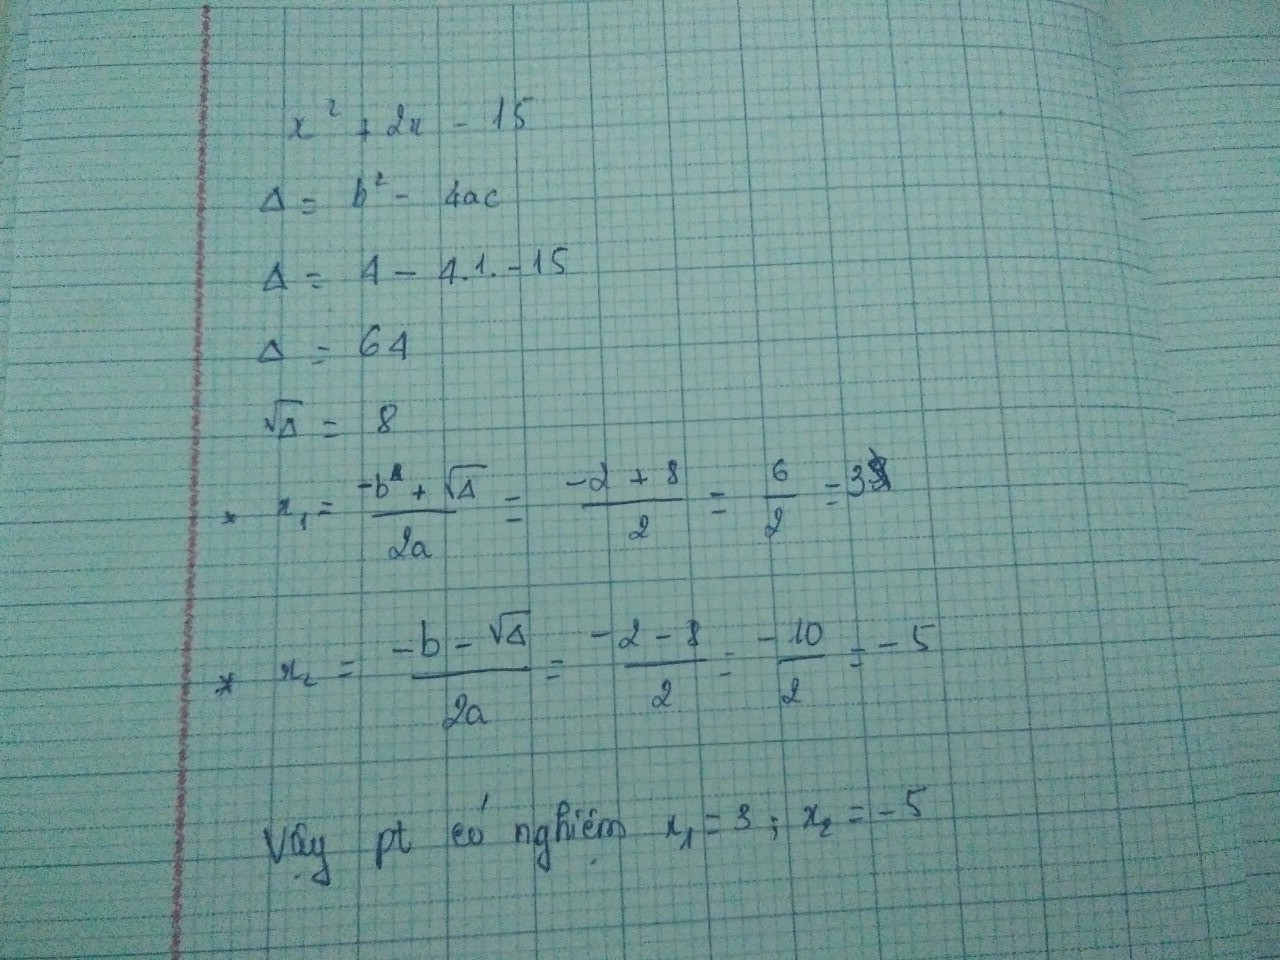 x² + 2x - 15
Δ = b² - 4ac
Δ = 4 - 4.1.-15
Δ = 64
√Δ = 8
* x₁ = (-b + √Δ)/2a = (-2 + 8)/2 = 6/2 = 3
* x₂ = (-b - √Δ)/2a = (-2 - 8)/2 = -10/2 = -5
Vậy pt có nghiệm x₁ = 3 ; x₂ = -5